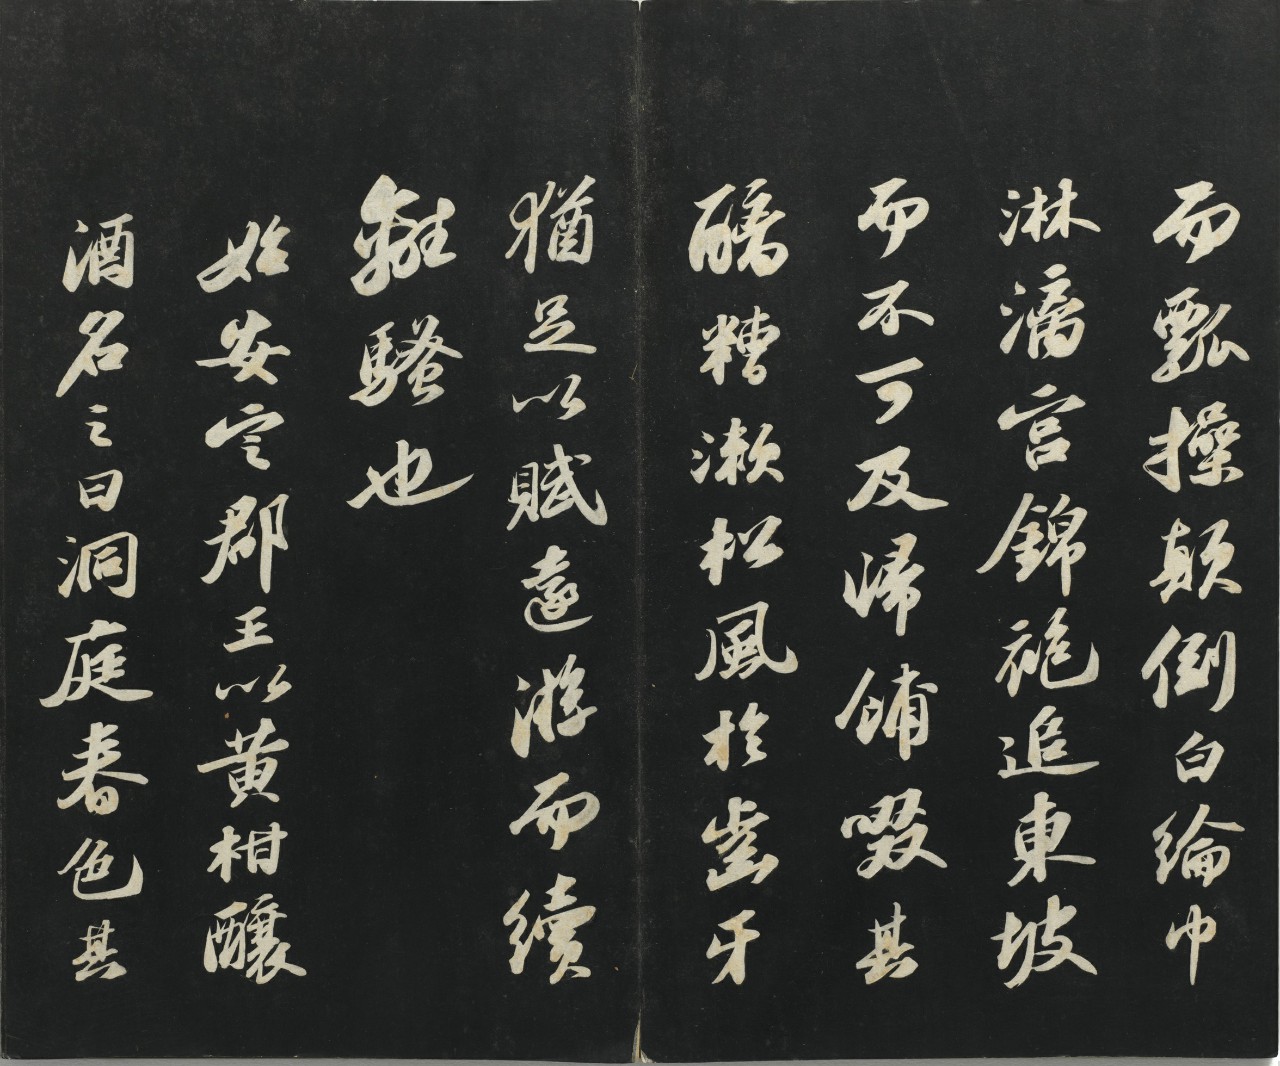 而瓢操顛倒白綸巾
淋漓宮錦袍追東坡
而不可及歸餔啜其
醨糟漱松風於齒牙
猶足以賦遠游而續
離騷也
始安定郡王以黃柑釀
酒名之曰洞庭春色其